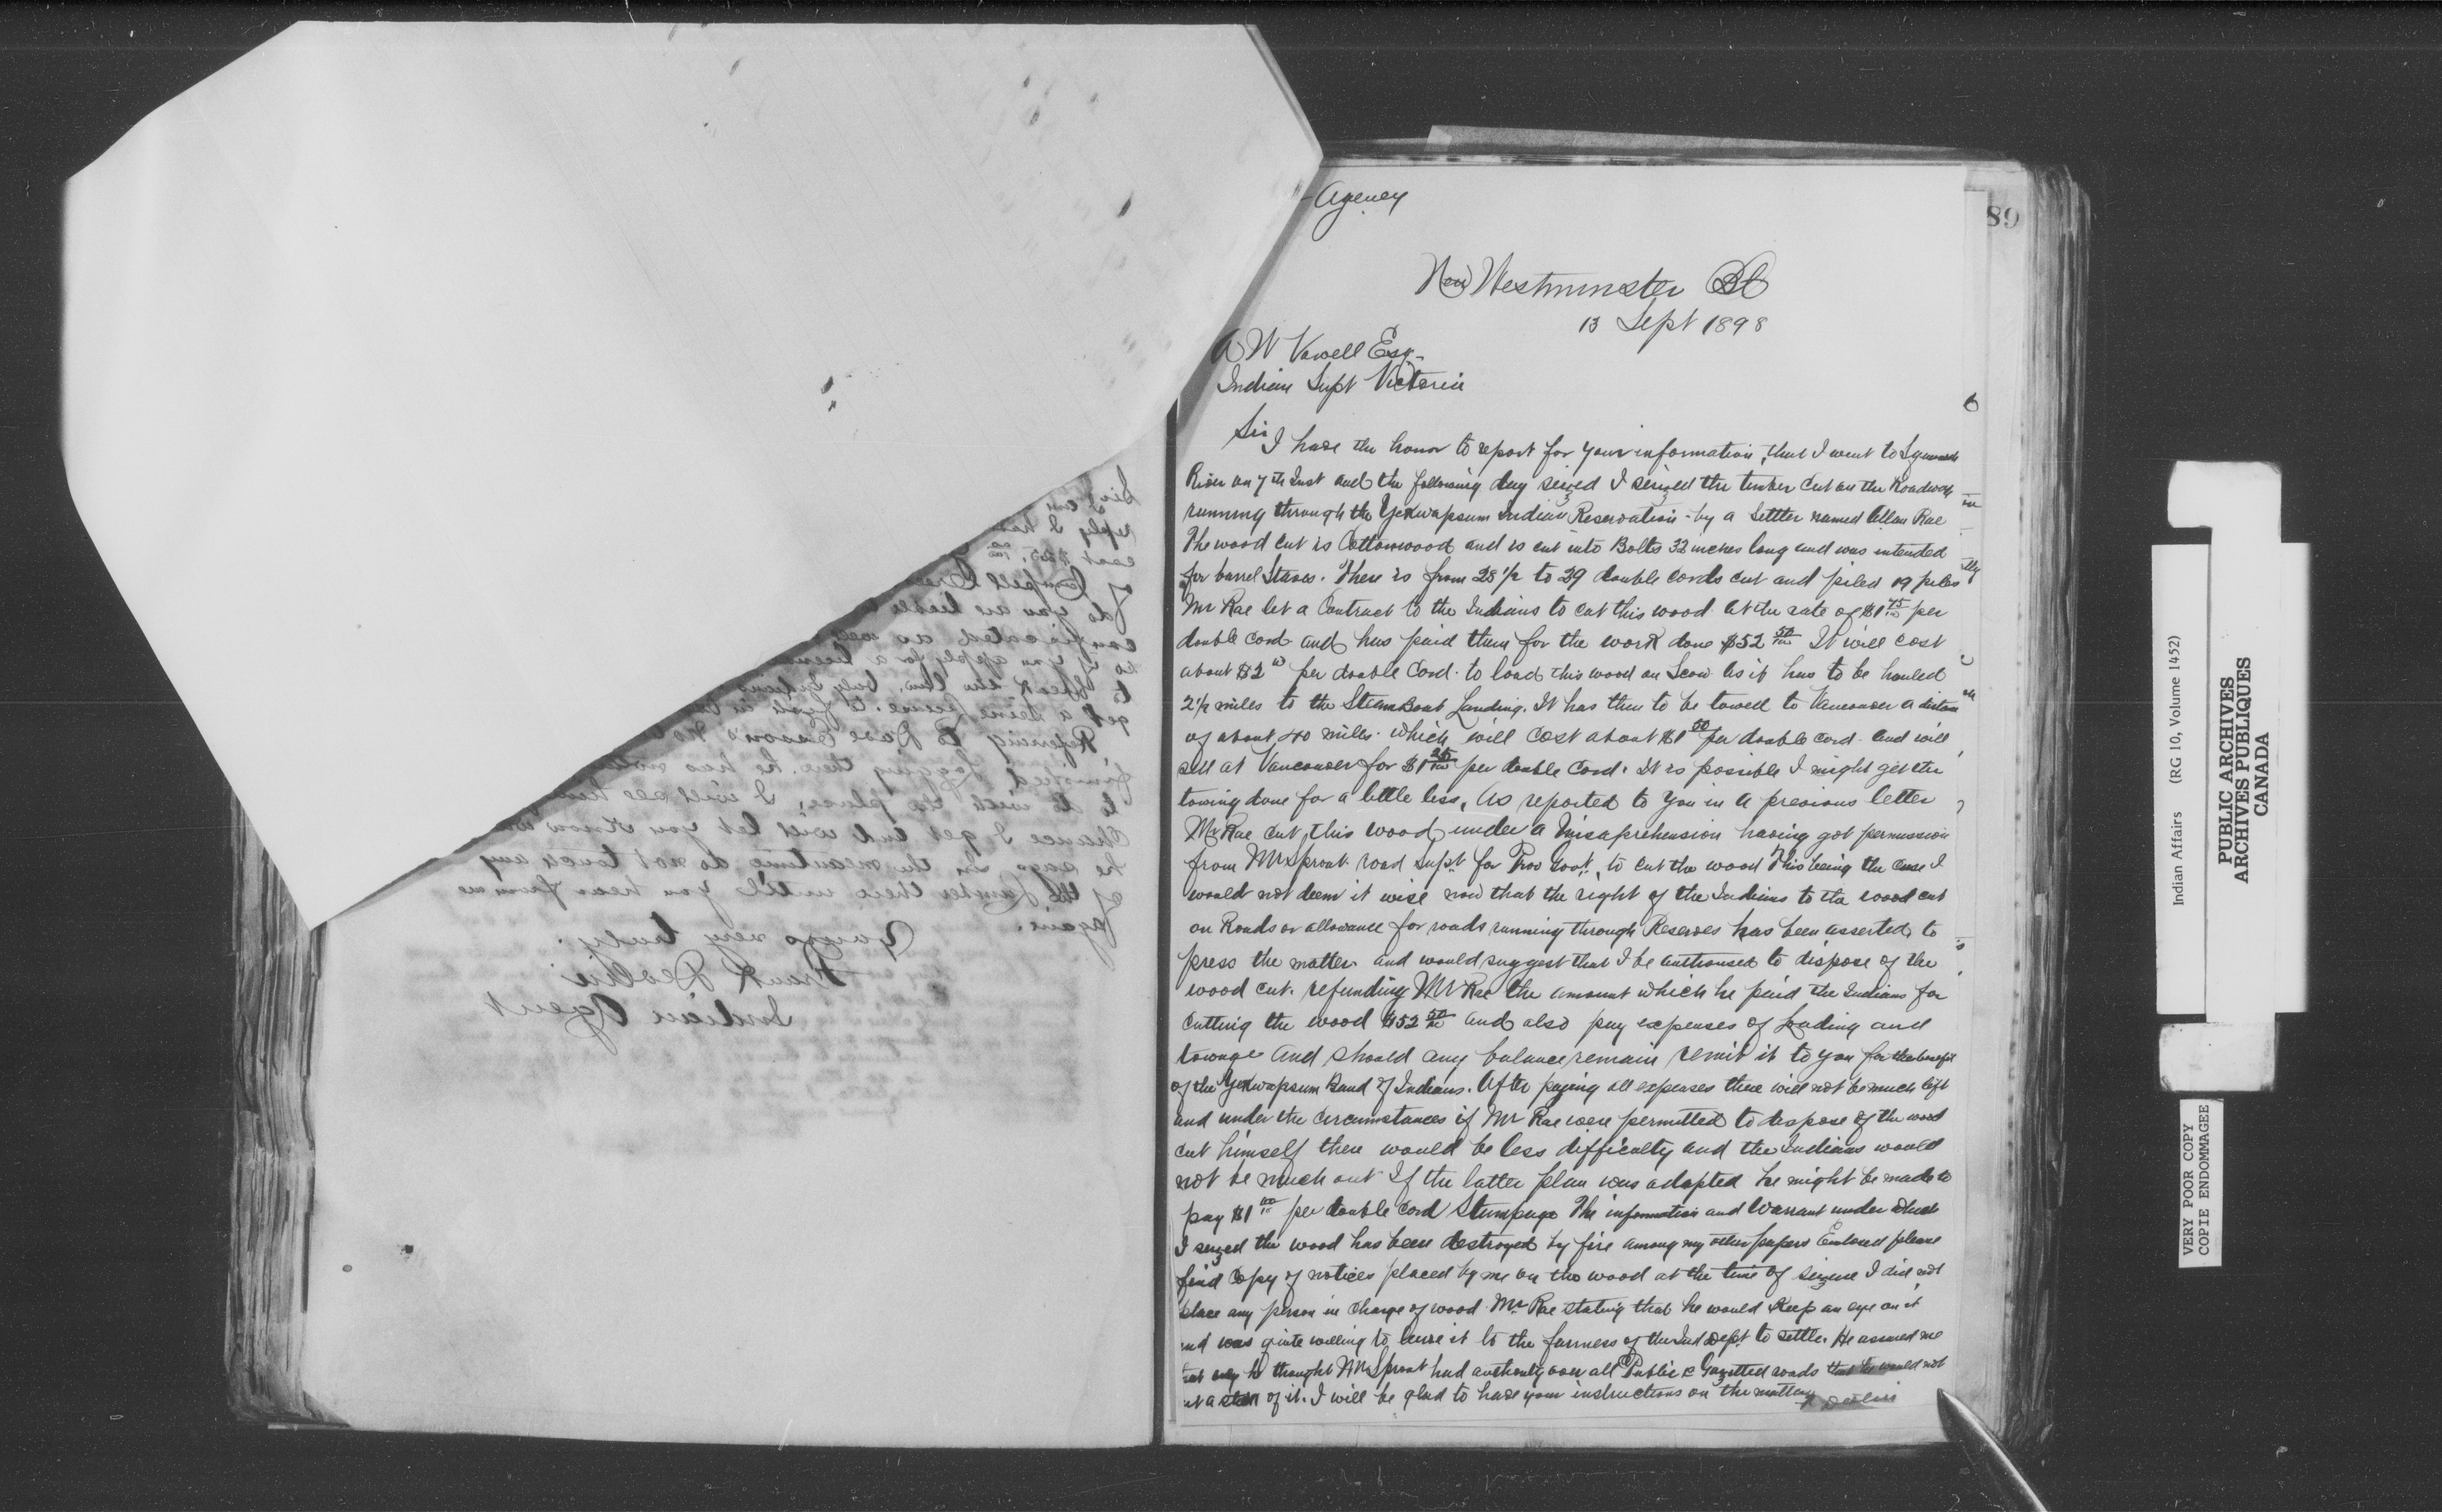 89
Agency
New Westminster BC
13 Sept 1898
A W Vowell Esq.
Indian Supt Victoria
Sir
I have the honor to report for your information, that I went to
River on 7th Inst and the following day seized I seized the timber cut on the Roadway
running through the Indian Reservation by a Settler named Allan Rae
The wood cut is Cottonwood and is cut into Bolts 32 inches long and was intended
for barrel Staves. There is from 28 1/2 to 29 double cords cut and piled 19 piles
Mr Rae let a Contract to the Indians to cut this wood at the rate of $1 75/100 per
double cord and has paid them for the work done $52 50/100 It will cost
about $2 00 per double Cord to load this wood on Scow as it has to be hauled
2 1/2 miles to the Steam Boat Landing. It has then to be towed to Vancouver a
of about 40 miles which will cost about $1 50 per double cord and will
sell at Vancouver for per double Cord. It is possible I might get the
towing done for a little less, As reported to you in a previous letter
Mr Rae cut this wood under a Misaprehension having got permission
from Mr Sproat road Supt for Prov Govt, to cut the wood This being the case I
would not deem it wise now that the right of the Indians to the wood cut
on Roads or allowance for roads running through Reserves has been asserted to
press the matter and would suggest that I be authorised to dispose of the
wood cut. refunding Mr Rae the amount which he paid the Indians for
Cutting the wood $52 50/100 and also pay expenses of loading and
towage and should any balance remain remit it to you for the benefit
of the Band of Indians. After paying all expenses there will not be much left
and under the circumstances if Mr Rae were permitted to dispose of the wood
cut himself there would be less difficulty and the Indians would
not be much out If the latter plan was adopted he might be made to
pay $1 00 per double cord Stumpage The information and Warrant under which
I seized the wood has been destroyed by fire among my other papers Enclosed please
find Copy of notices placed by me on the wood at the time of seizure I did not
place any person in charge of wood Mr Rae stating that he would Keep an eye on it
and was quite willing to leave it to the fairness of the Ind Dept to settle. He assured me
thought Mr Sproat had authority over all Public & Gazetted roads that he would not
of it. I will be glad to have your instructions on the matter
F Devlin
Sir
reply I have
cost
of
do you are liable
confiscated as well
so if you apply for a license
to break the law. Only Indians
get a license to
Refering to Dave
finished logging there, he has
to do with the place, I will see him
chance I get and will let you know what
he says In the meantime do not touch any
of the Lumber there until you hear from me
again.
Yours very truly.
Frank Devlin
Indian Agent
Indian Affairs (RG 10, Volume 1452)
PUBLIC ARCHIVES
ARCHIVES PUBLIQUES
CANADA
VERY POOR COPY
COPIE ENDOMMAGEE